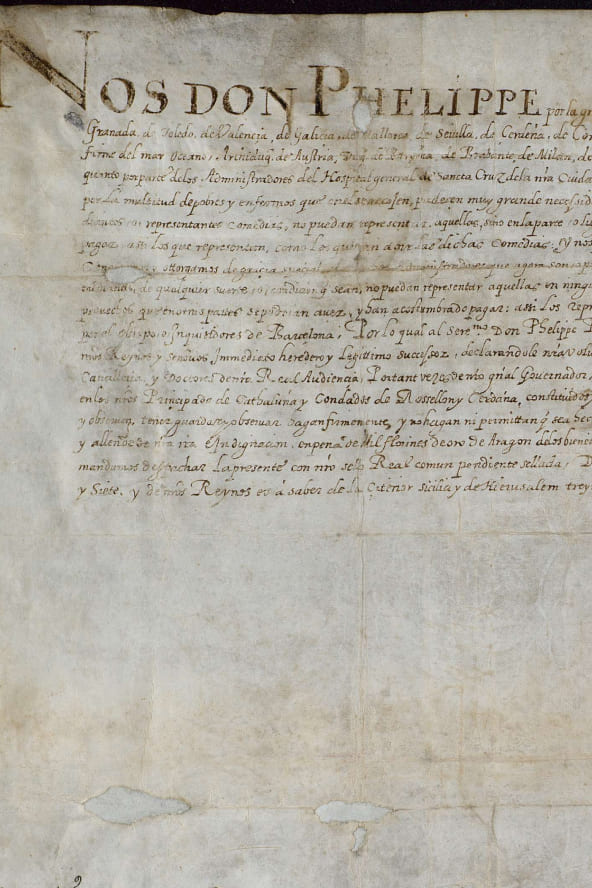 NOS DON PHELIPPE por la gr
Granada, de Toledo, de Valencia, de Galicia, de Mallorca, de Sevilla, de Cerdeña, de Cor
firme del mar Oceano, Archiduq. de Austria, Duq. de Borgoña, de Brabante, de Milan, de
quanto por parte de los Administradores del Hospital general de Sancta Cruz de la nra Ciuda
por la multitud de pobres y enfermos que en el se acojen, padecen muy grande necessid
representantes comedias, no puedan representar aquellas, sino en la parte o lu
pagar, assi los que representan, como los que van a oir las dichas Comedias. Y nos
otorgamos de gracia special, Administradores que agora son o p
de qualquier suerte o condicion q sean, no puedan representar aquellas en ningu
prouechos que en otras partes se podrian auer, y han acostumbrado pagar: assi los repr
por el Obispo o Inquisidores de Barcelona, Por lo qual al Seren.mo Don Phelippe P
mos Reynos y Señorios, immediato heredero y Legittimo successor, declarandole nra volu
Cancilleria, y Doctores de nra Real Audiencia, Portant vezes de nro gñal Gouernador,
en los nros Principado de Cathaluña y Condados de Rossellon y Cerdaña, constituidos y
y obseruen, tener guardar y obseruar hagan firmemente, y no hagan ni permittan q sea hec
y allende de nra ira e Indignacion, en pena de Mil florines de oro de Aragon de los biene
mandamos despachar la presente con nro sello Real comun pendiente sellada, D
y Siete. y de nros Reynos es á saber de la Citerior Sicilia y de Hierusalem trey